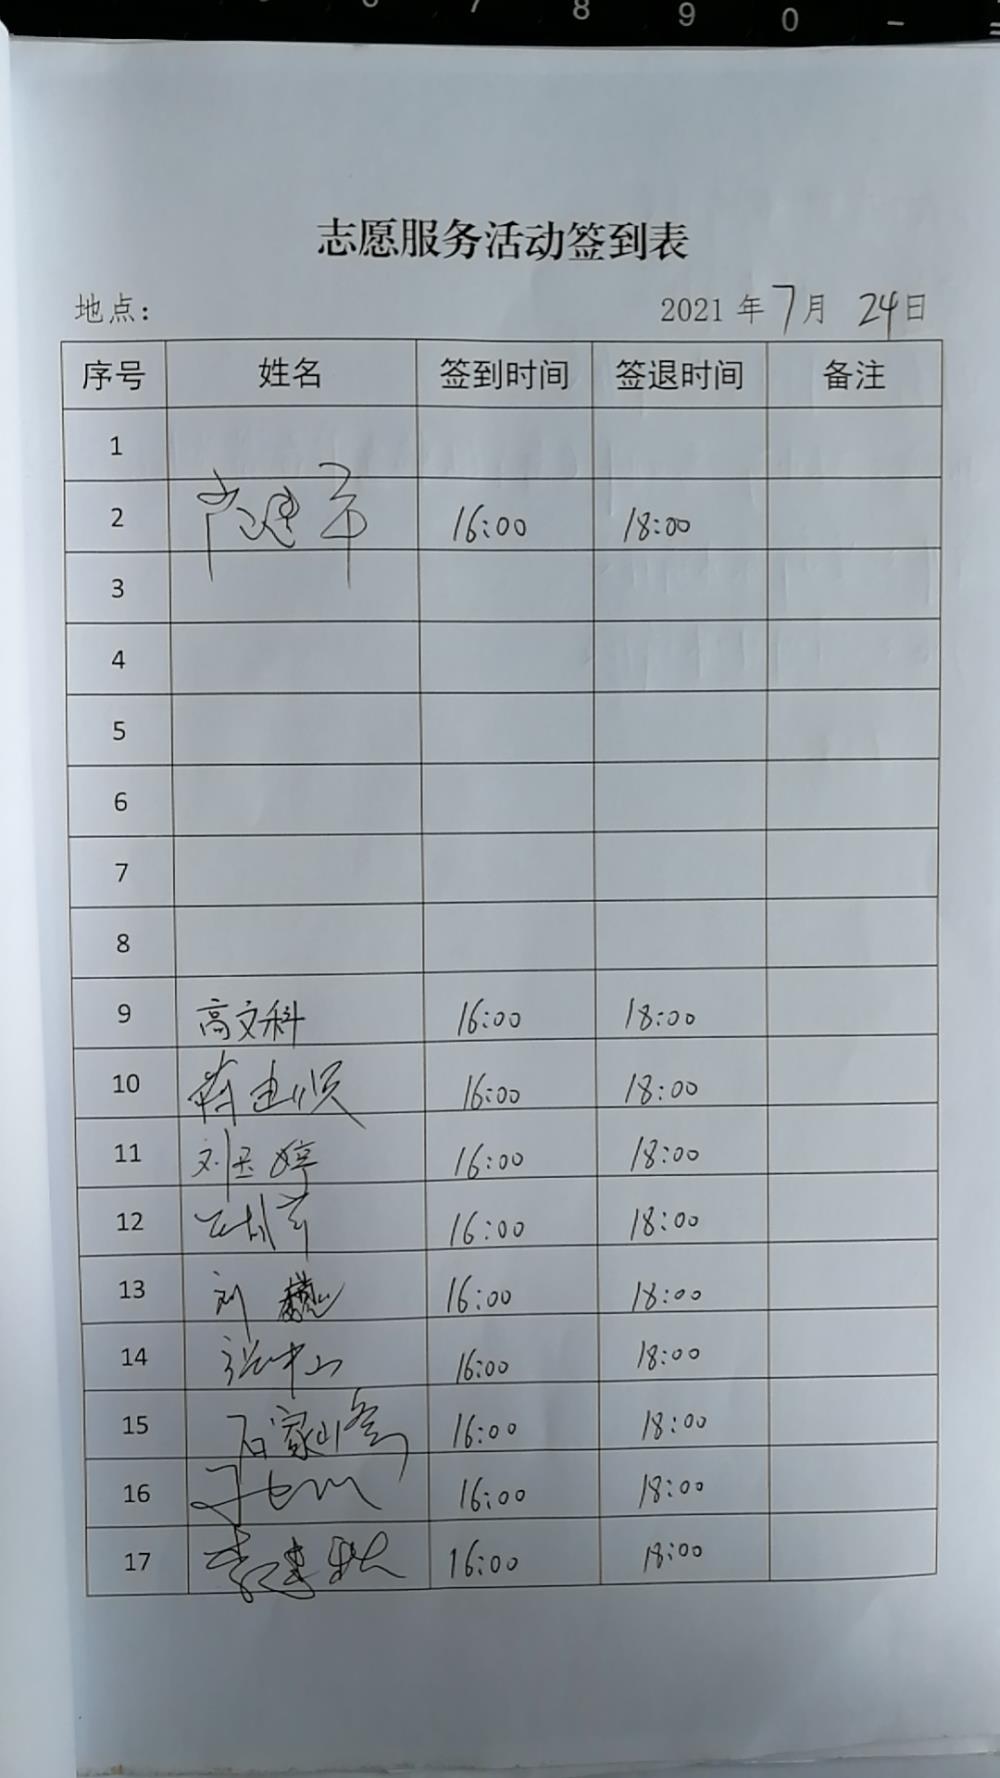 7 8 9 0 -
志愿服务活动签到表
地点: 2021 年 7 月 24 日
序号 姓名 签到时间 签退时间 备注
1
2 16:00 18:00
3
4
5
6
7
8
9 高文科 16:00 18:00
10 16:00 18:00
11 刘玉婷 16:00 18:00
12 16:00 18:00
13 刘 16:00 18:00
14 张中山 16:00 18:00
15 石家峰 16:00 18:00
16 16:00 18:00
17 16:00 18:00